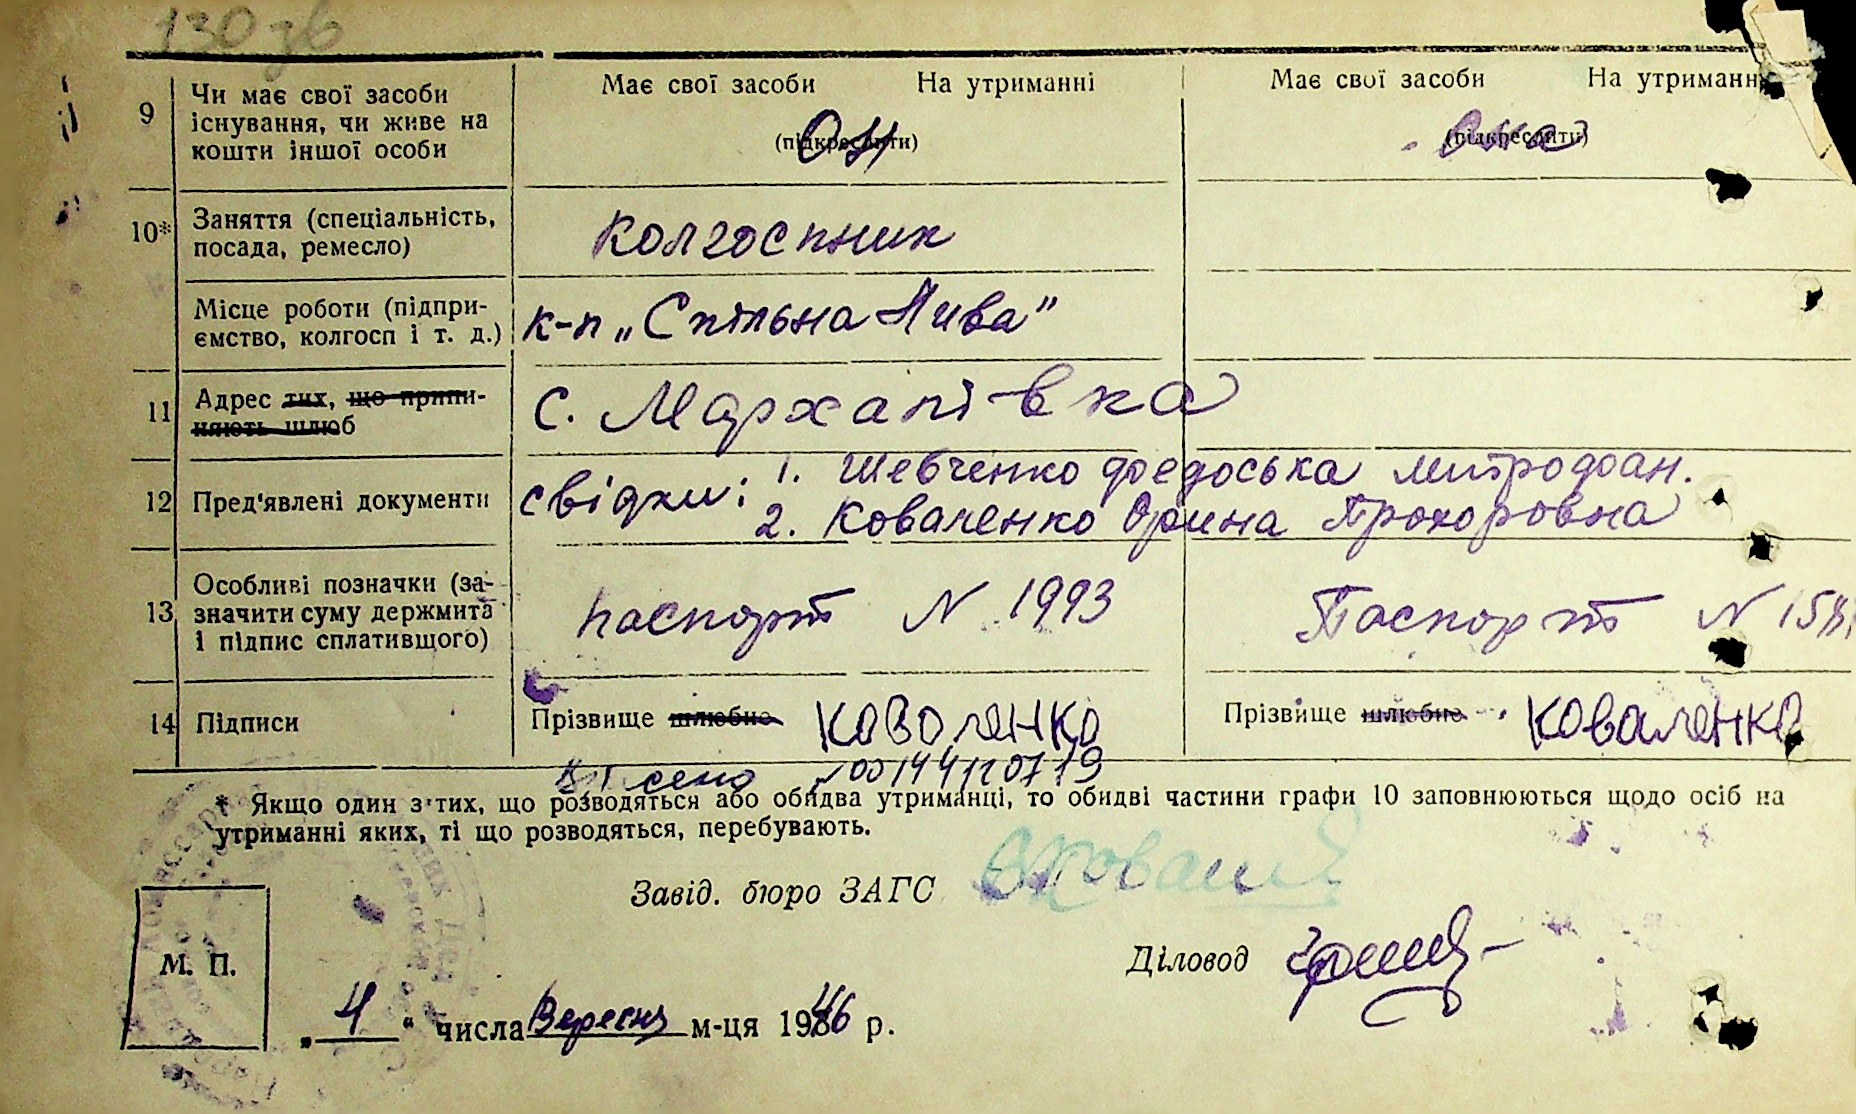 130 зв
Має свої засоби На утриманні Має свої засоби На утриманн
9 Чи має свої засоби
існування, чи живе на
кошти іншої особи
(підкреслити) (підкреслити)
Он Она
10* Заняття (спеціальність,
посада, ремесло)
Колгоспник
Місце роботи (підпри-
ємство, колгосп і т. д.)
к-п „Спільна Нива"
11 Адрес тих, що припи-
няють шлюб
с. Мархалівка
12 Пред'явлені документи
свідки: 1. Шевченко Федоська Митрофан.
2. Коваленко Орина Прохоровна
13 Особливі позначки (за-
значити суму держмита
і підпис сплатившого)
паспорт N 1993 Паспорт N
14 Підписи
Прізвище шлюбне Коваленко Прізвище шлюбне Коваленко
* Якщо один з тих, що розводяться або обидва утриманці, то обидві частини графи 10 заповнюються щодо осіб на
утриманні яких, ті що розводяться, перебувають.
Завід. бюро ЗАГС
Діловод
М. П.
„4" числа Вересня м-ця 1946 р.